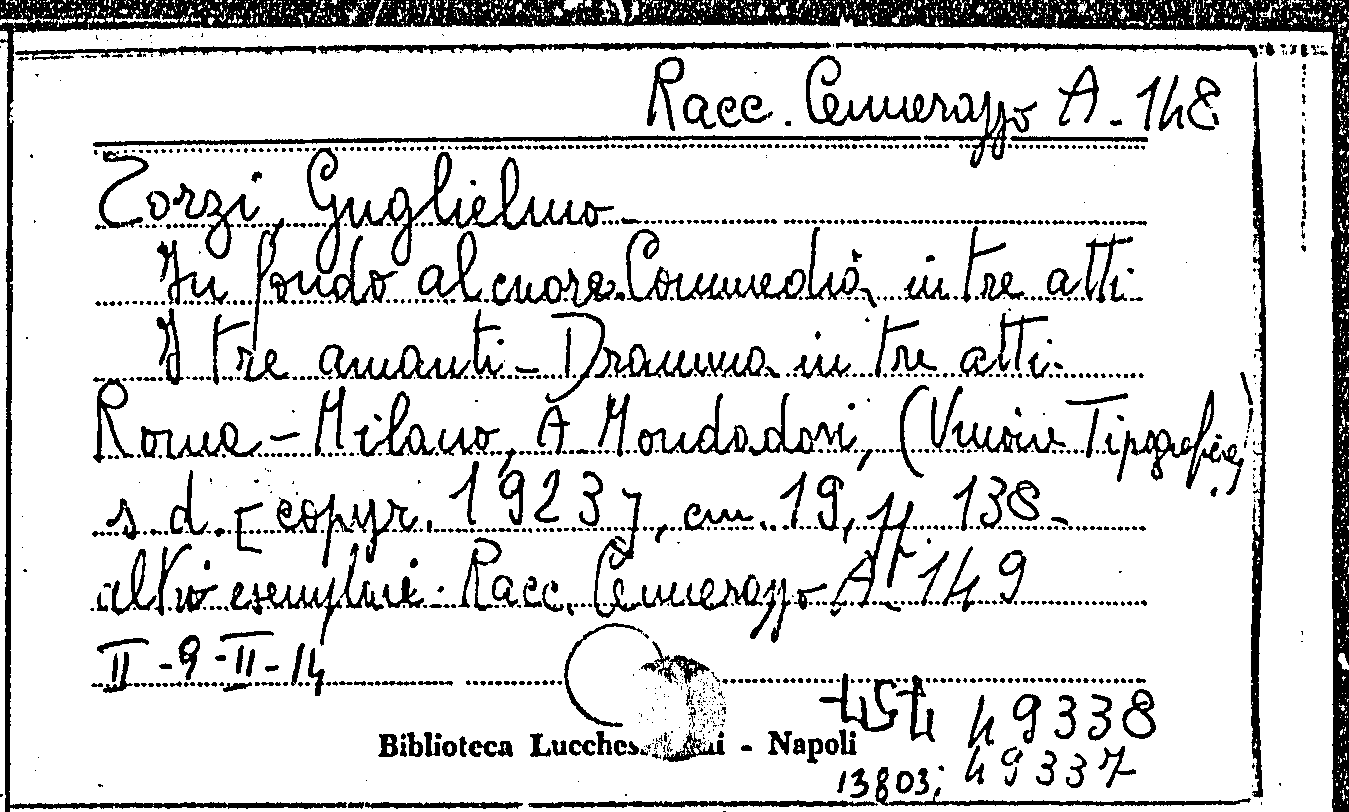 Racc. Cennerazzo A - 148
Zorzi, Guglielmo -
In fondo al cuore. Commedia in tre atti.
I tre amanti - Dramma in tre atti -
Roma - Milano, A. Mondadori, (Unione Tipografica)
s. d. [copyr. 1923], cm. 19, pp. 138 -
altri esemplari: Racc. Cennerazzo A - 149
II - 9 - II - 14
49338
Biblioteca - Napoli
13803; 49337